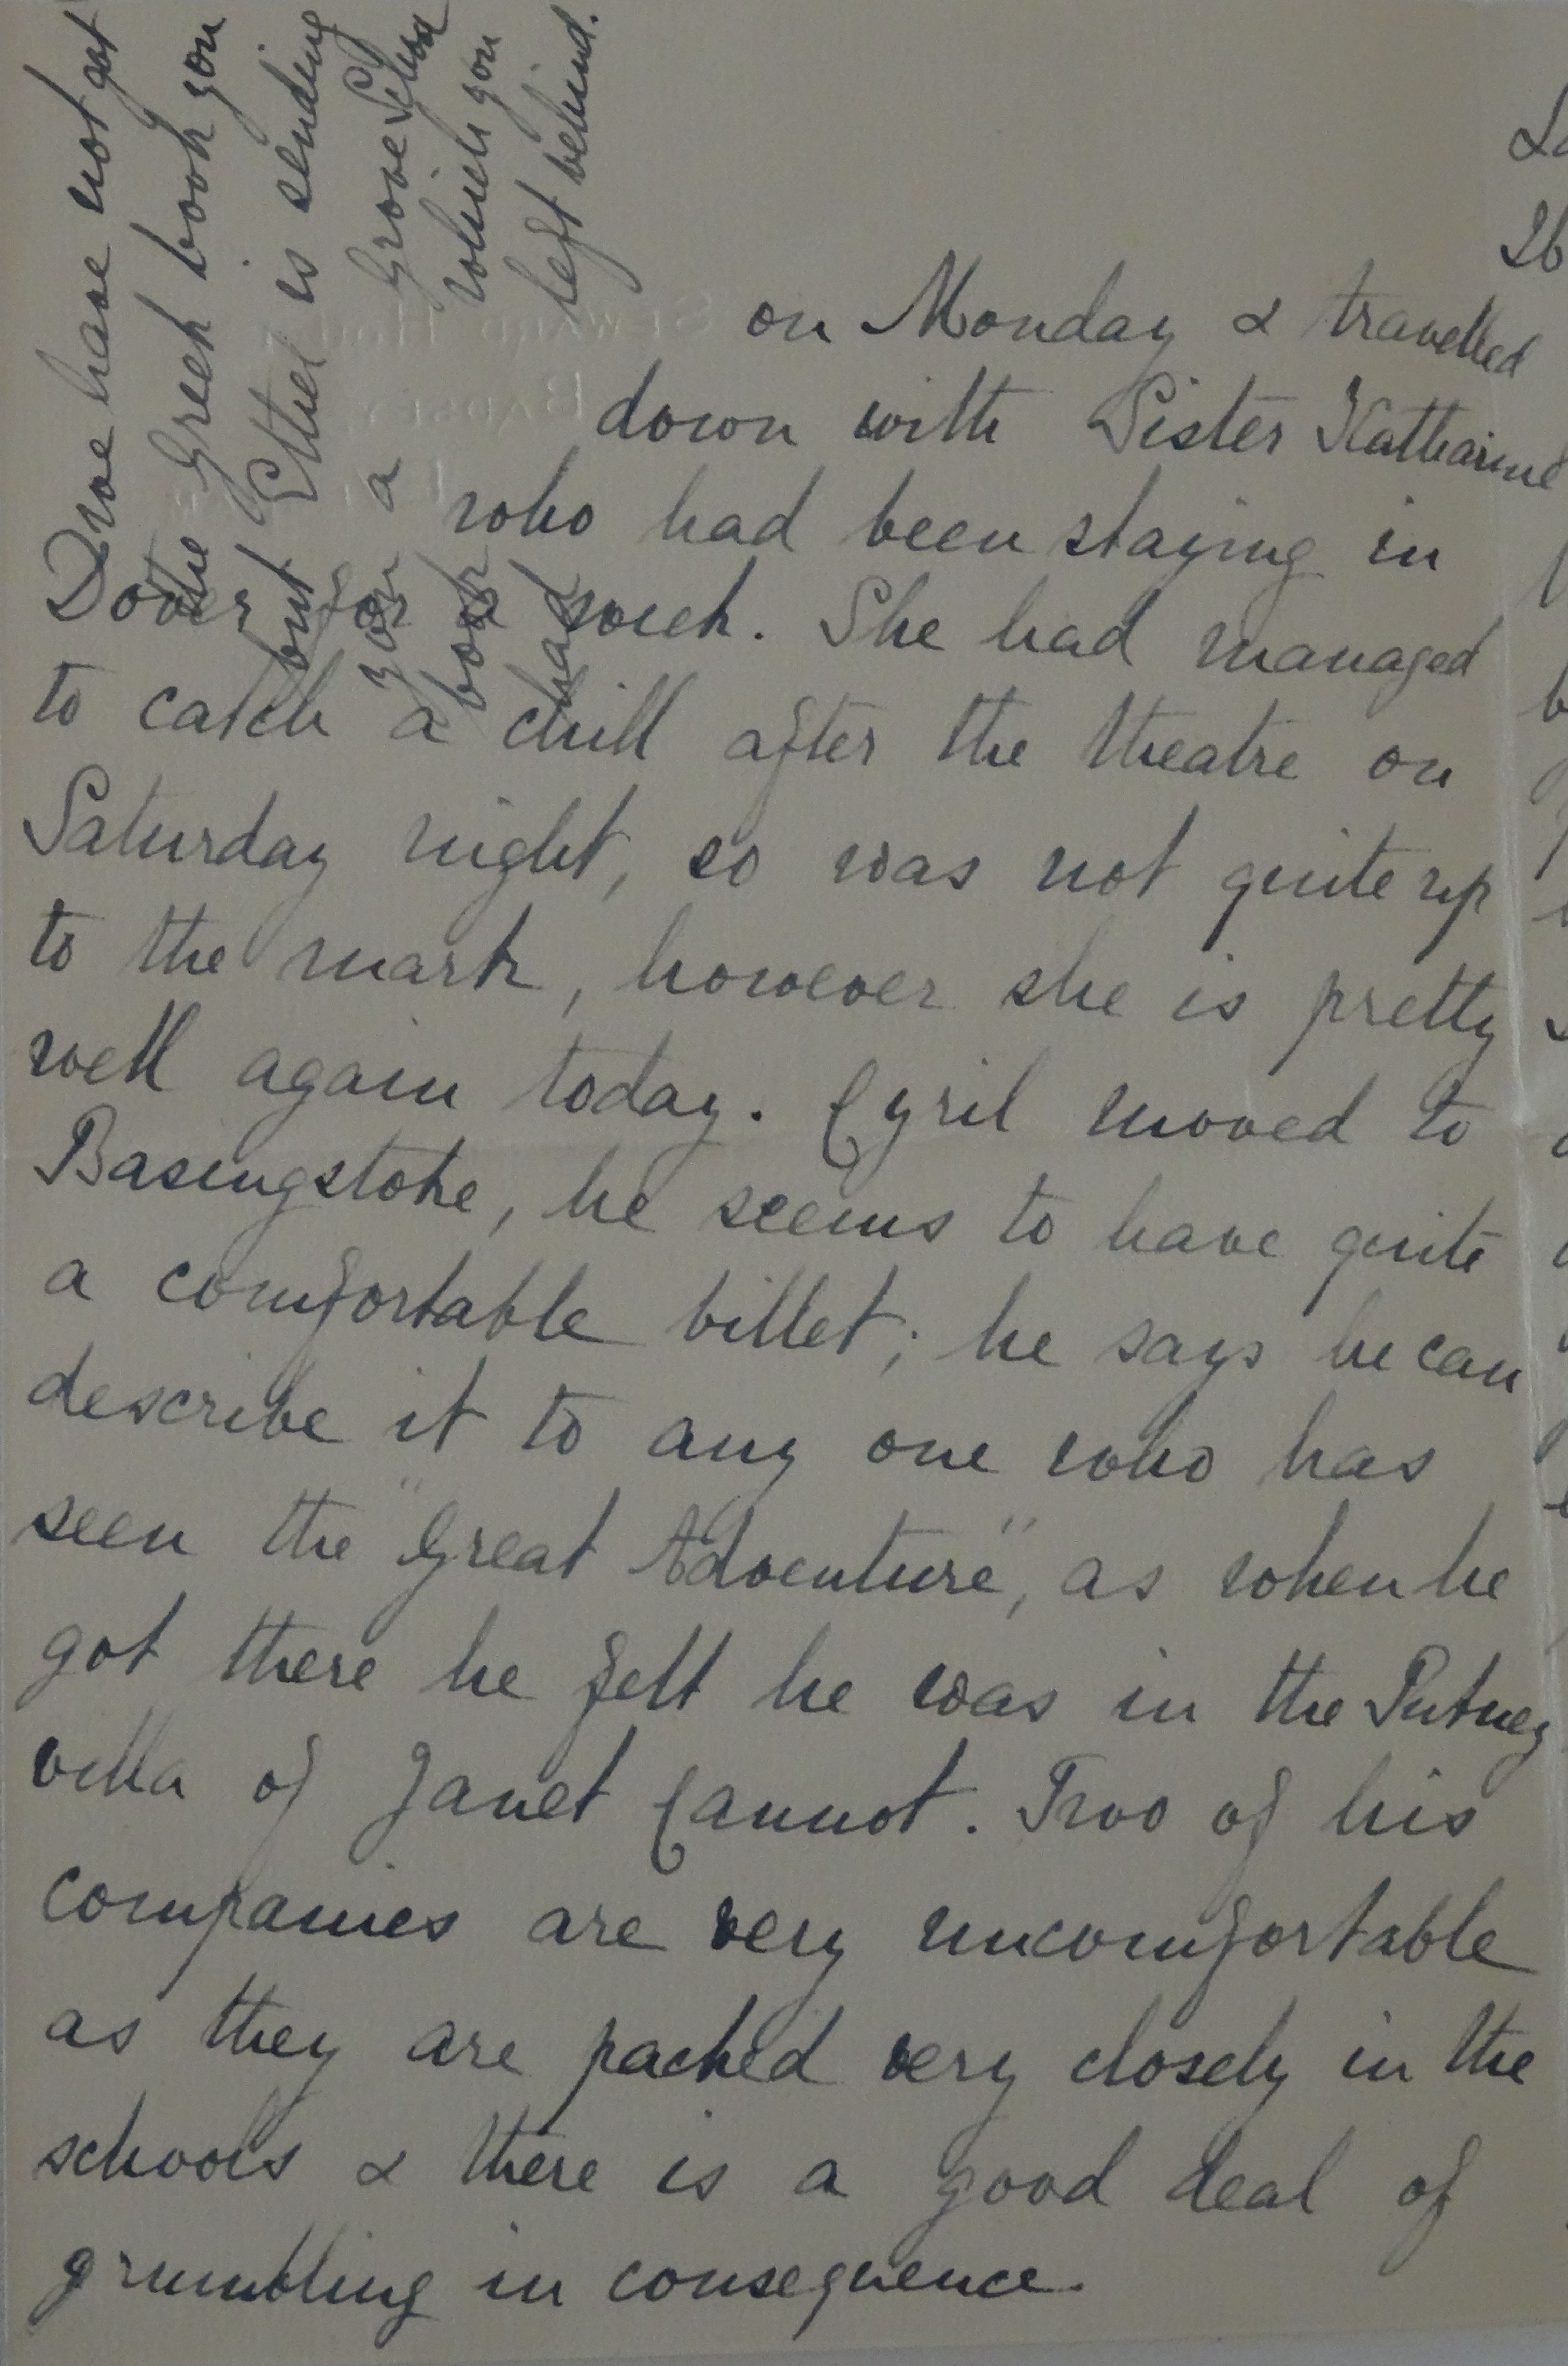 we have not got
the Greek book you
but Ethel is sending
you a Grove School
book which you
had left behind.
on Monday & travelled
down with Sister Katharine
who had been staying in
Dover for a week. She had managed
to catch a chill after the theatre on
Saturday night, so was not quite up
to the mark, however she is pretty
well again today. Cyril moved to
Basingstoke, he seems to have quite
a comfortable billet; he says he can
describe it to any one who has
seen the "Great Adventure", as when he
got there he felt he was in the Putney
villa of Janet Cannot. Two of his
companies are very uncomfortable
as they are packed very closely in the
schools & there is a good deal of
grumbling in consequence.